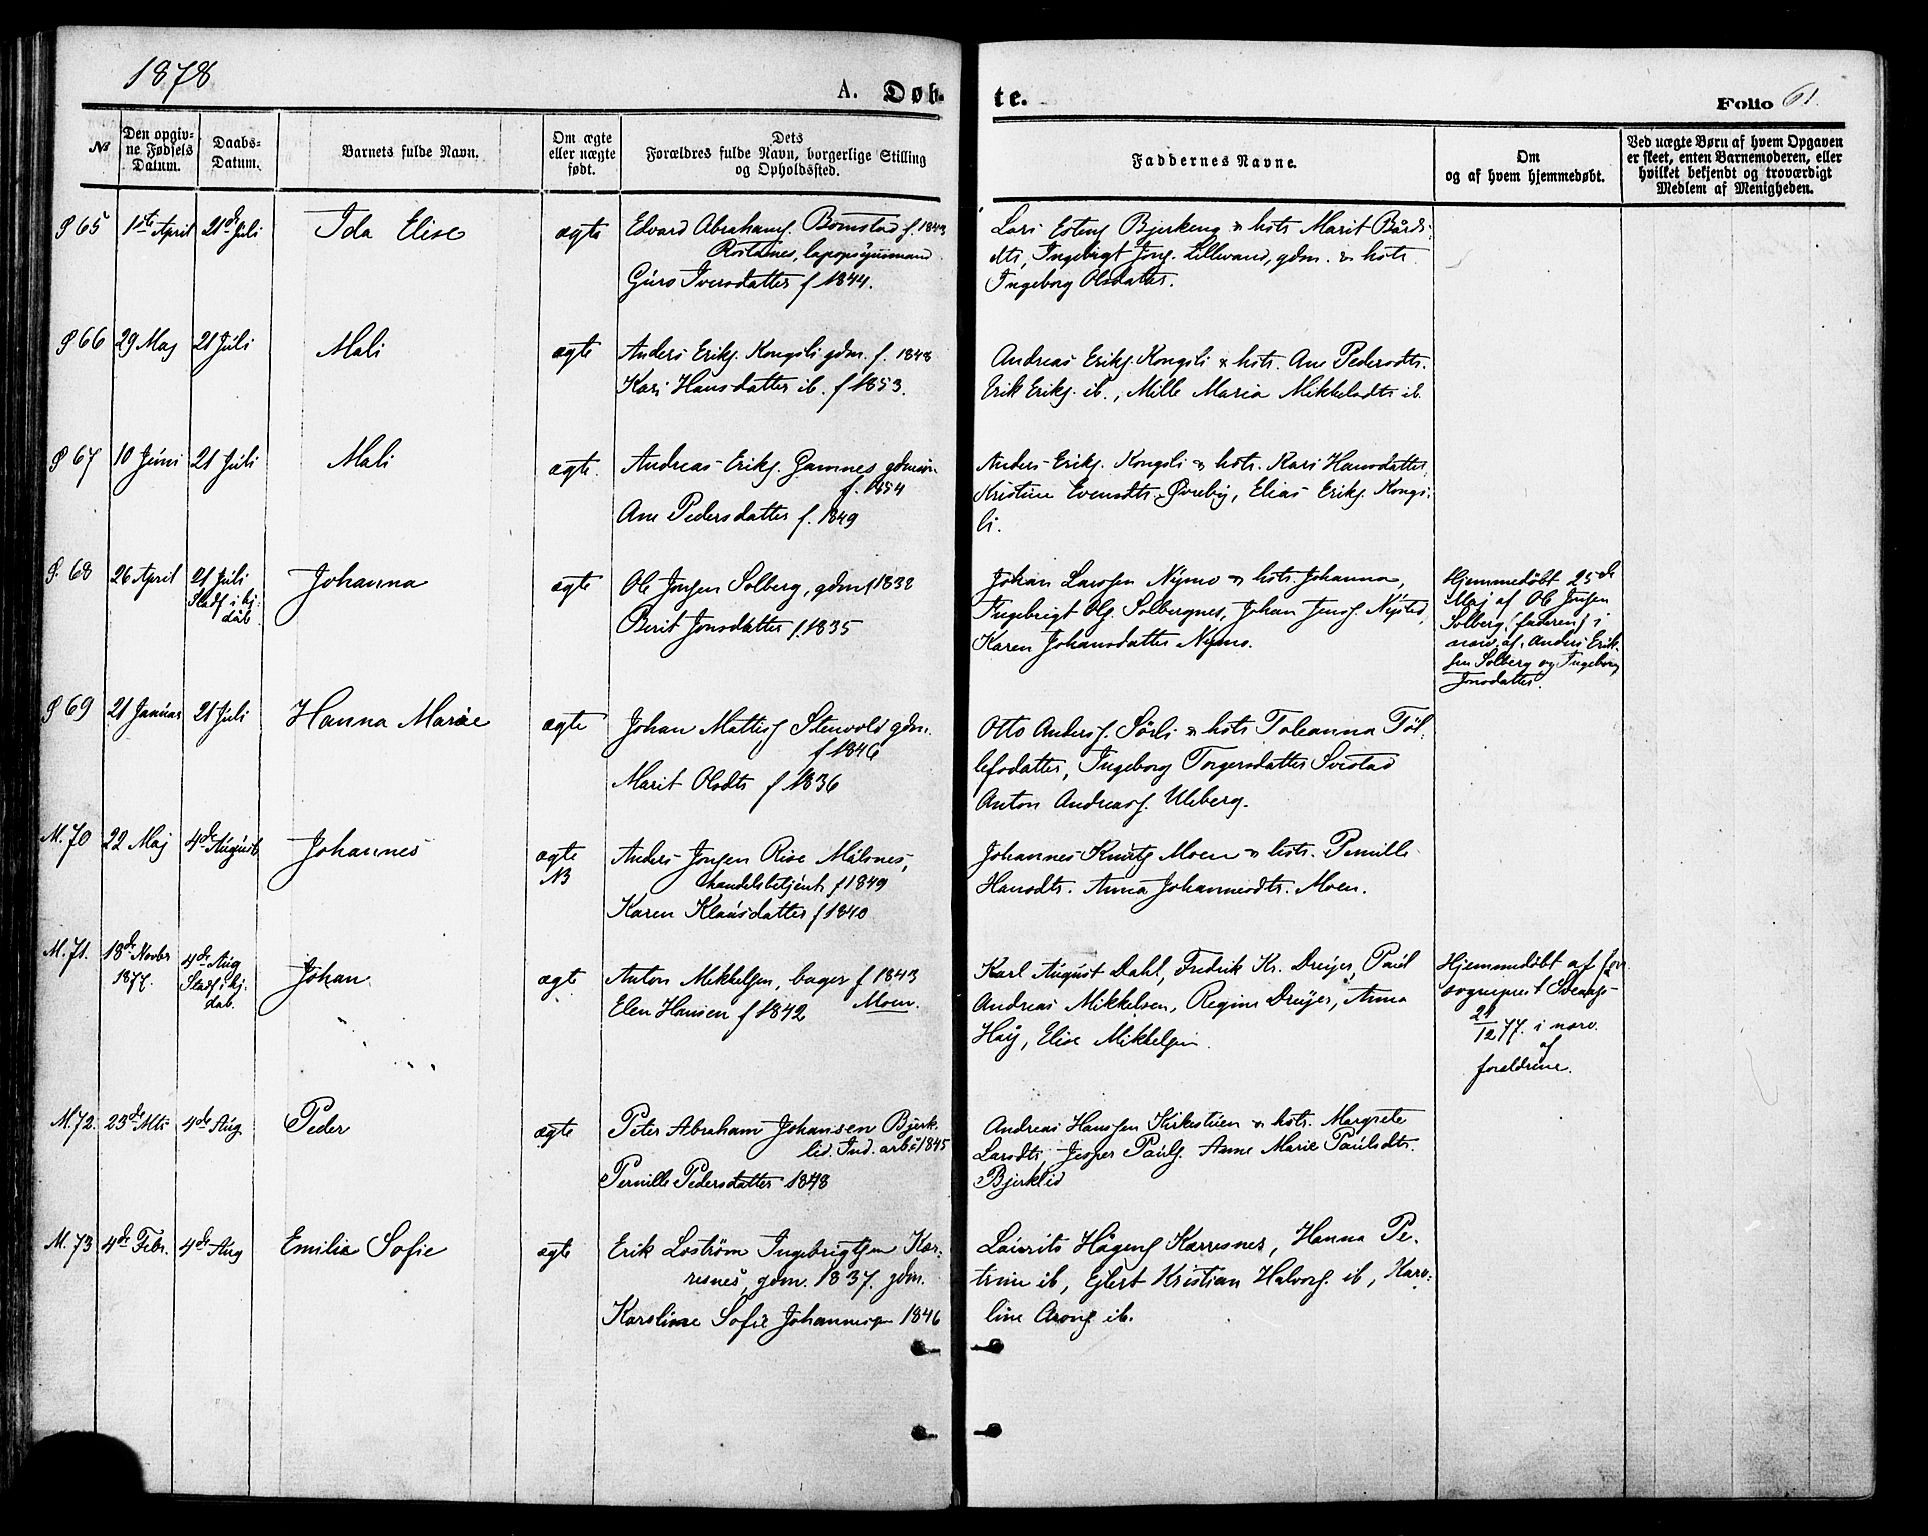 1878
A. Døb-
te.
Folio 61.
№
Den opgiv-
ne Fødsels
Datum.
Daabs-
Datum.
Barnets fulde Navn.
Om ægte
eller uægte
født.
Dets
Forældres fulde Navn, borgerlige Stilling
og Opholdssted.
Faddernes Navne.
Om
og af hvem hjemmedøbt.
Ved uægte Børn af hvem Opgaven
er skeet, enten Barnemoderen, eller
hvilket bekjendt og troværdigt
Medlem af Menigheden.
S 65
1ste April
21de Juli
Ida Elise
ægte
Edvard Abrahams. Bomstad f. 1843
Rostadnes,
Guro Iversdatter f 1844.
Lars Estens Bjerkeng & hstr. Marit Bårds-
dtr, Ingebrigt Jons. Lillevand, gdm. & hstr.
Ingeborg Olsdatter.
S 66
29 Maj
21 Juli
Mali
ægte
Anders Eriks. Kongsli gdm. f. 1848
Kari Hansdatter ib. f 1853.
Andreas Eriks. Kongsli & hstr. Ane Pedersdtr.
Erik Eriks. ib., Mille Maria Mikkelsdtr ib.
S 67
10 Juni
21 Juli
Mali
ægte.
Andreas Eriks. Gamnes
f. 1854
Ane Pedersdatter f. 1849
Anders Eriks. Kongsli & hstr. Kari Hansdatter,
Kristine Evensdtr. Øvreby, Elias Eriks. Kongs-
li.
S. 68
26 April
21 Juli
Stadf. i hj.
dåb.
Johanna
ægte
Ole Jonsen Solberg, gdm f 1838
Berit Jonsdatter f. 1835
Johan Larssen Nymo & hstr. Johanna,
Ingebrigt Ols. Solbergnes, Johan Jens. Nysted,
Karen Johansdatter Nymo.
Hjemmedøbt 25de
Maj af Ole Jonsen
Solberg (faderen) i
nærv. af Anders Erik-
sen Solberg og Ingeborg
Jonsdatter.
S 69
21 Januar
21 Juli
Hanna Marie
ægte
Johan Mattis. Stenvold gdm.
f 1846
Marit Olsdtr f 1836
Otto Anders. Sörli & hstr Toleanna Tol-
lefsdatter, Ingeborg Torgersdatter Svestad
Anton Andreas. Uleberg.
M. 70
22 Maj
4de August
Johannes
ægte
NB
Anders Jonsen Rise Målsnes,
handelsbetjent f 1849
Karen Klausdatter f 1840
Johannes Knuts. Moen & hstr. Pernille
Hansdtr. Anna Johannesdtr. Moen.
M. 71.
18de Novbr
1877.
4de Aug
Stadf. i hj.
dåb.
Johan
ægte
Anton Mikkelsen, bager f 1843
Elen Hansen f 1842 Moen.
Karl August Dahl, Fredrik Kr. Dreyer, Paul
Andreas Mikkelsen, Regine Dreyer, Anna
Haij, Elise Mikkelsen.
Hjemmedøbt af
sogneprest
21/12 77. i nærv.
af
forældrene.
M. 72.
23de Mts
4de Aug
Peder
ægte
Peter Abraham Johansen Bjerk-
lid. Ind. arb. 1845
Pernille Pedersdatter 1848
Andreas Hanssen Kirkestuen & hstr. Margrete
Larsdtr, Jesper Pauls. Anne Marie Paulsdtr.
Bjerklid
M. 73
4de Febr.
4de Aug
Emilie Sofie
ægte
Erik Loström Ingebrigtsen Kar-
resnes, gdm. 1837. gdm.
Karoline Sofie Johannesen 1846
Laurits Hågens. Karresnes, Hanna Pe-
trine ib, Ejlert Kristian Halvors. ib, Karo-
line Arons. ib.